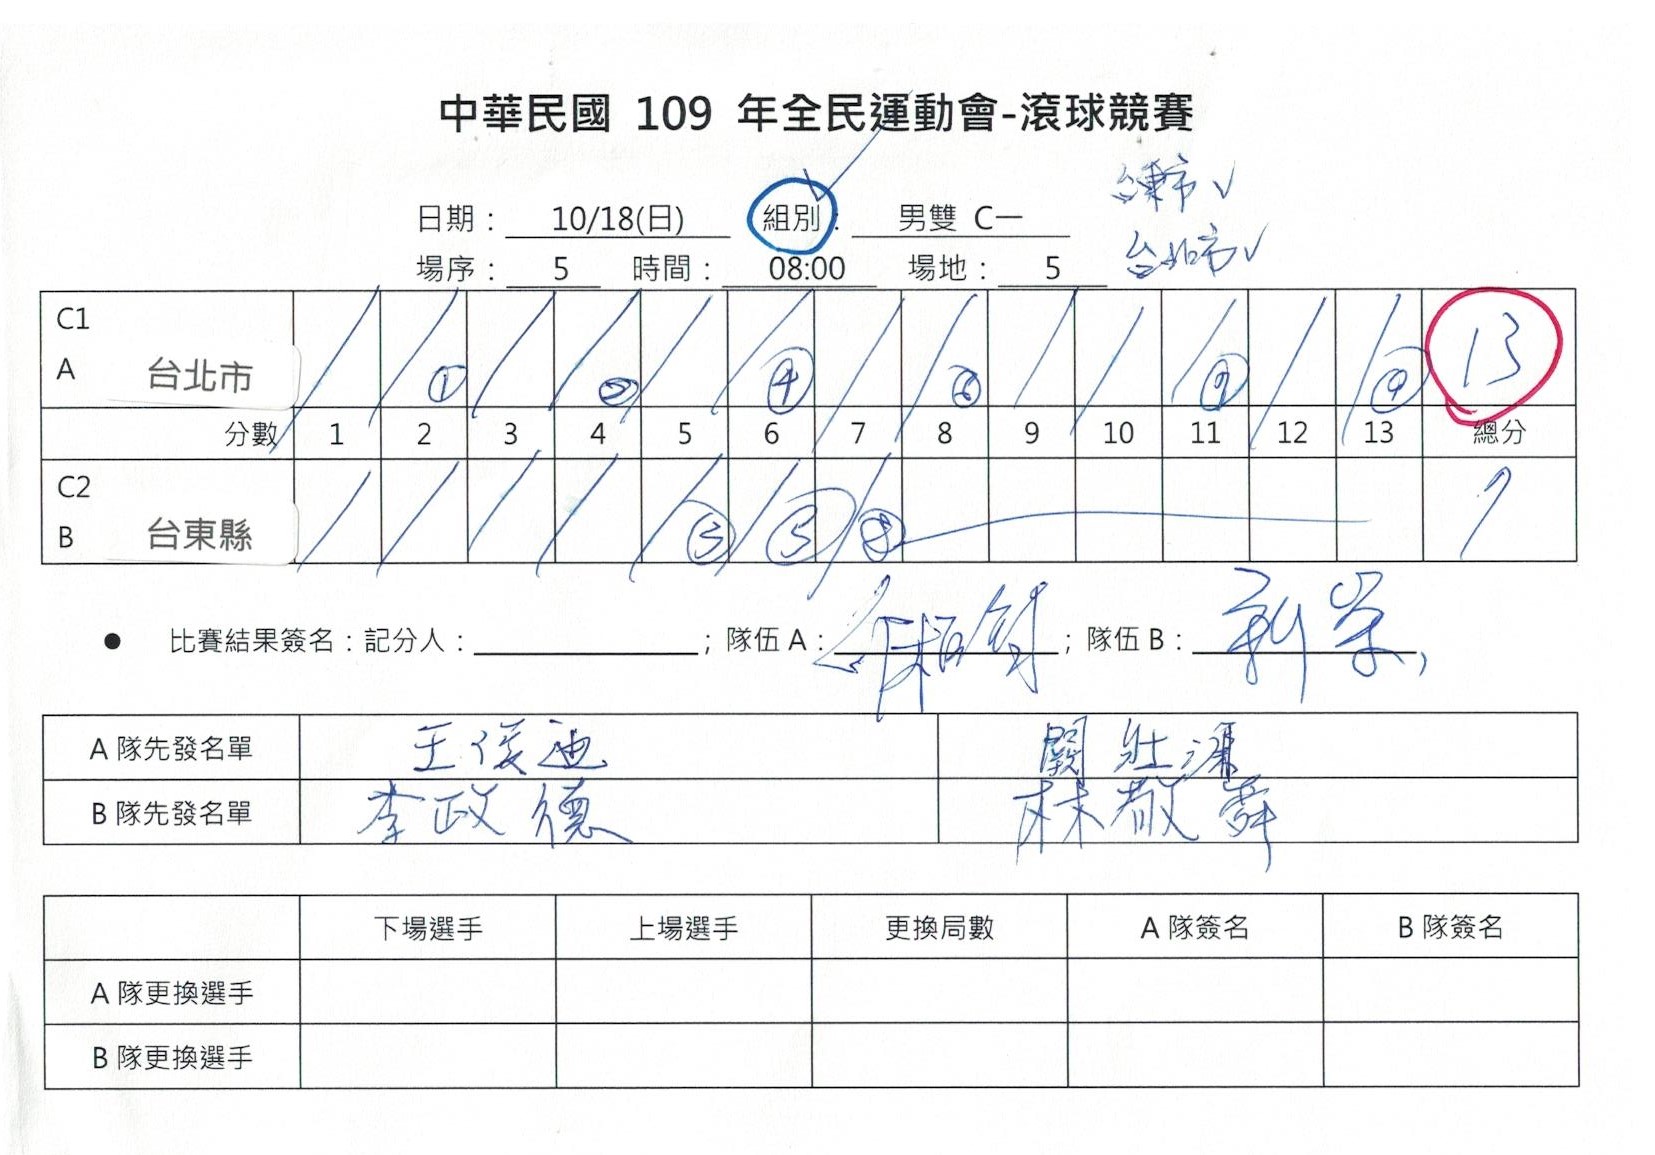 中華民國 109 年全民運動會-滾球競賽
台東市 ✓
日期： 10/18(日) 組別： 男雙 C一
台北市 ✓
場序： 5 時間： 08:00 場地： 5
C1
A 台北市 ① ② ④ ⑥ ⑨ 13
分數 1 2 3 4 5 6 7 8 9 10 11 12 13 總分
C2
B 台東縣 ③ ⑤ ⑧ 7
● 比賽結果簽名：記分人： ；隊伍 A： ；隊伍 B：
A 隊先發名單 王俊迪 關壯鴻
B 隊先發名單 李政德 林敬舜
下場選手 上場選手 更換局數 A 隊簽名 B 隊簽名
A 隊更換選手
B 隊更換選手